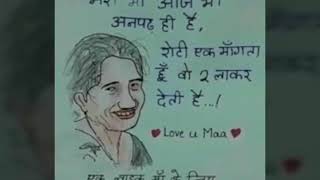 मेरी माँ आज भी
अनपढ़ ही है,
रोटी एक माँगता
हूँ वो 2 लाकर
देती है...!
♥Love u Maa♥
एक लाइक माँ के लिए